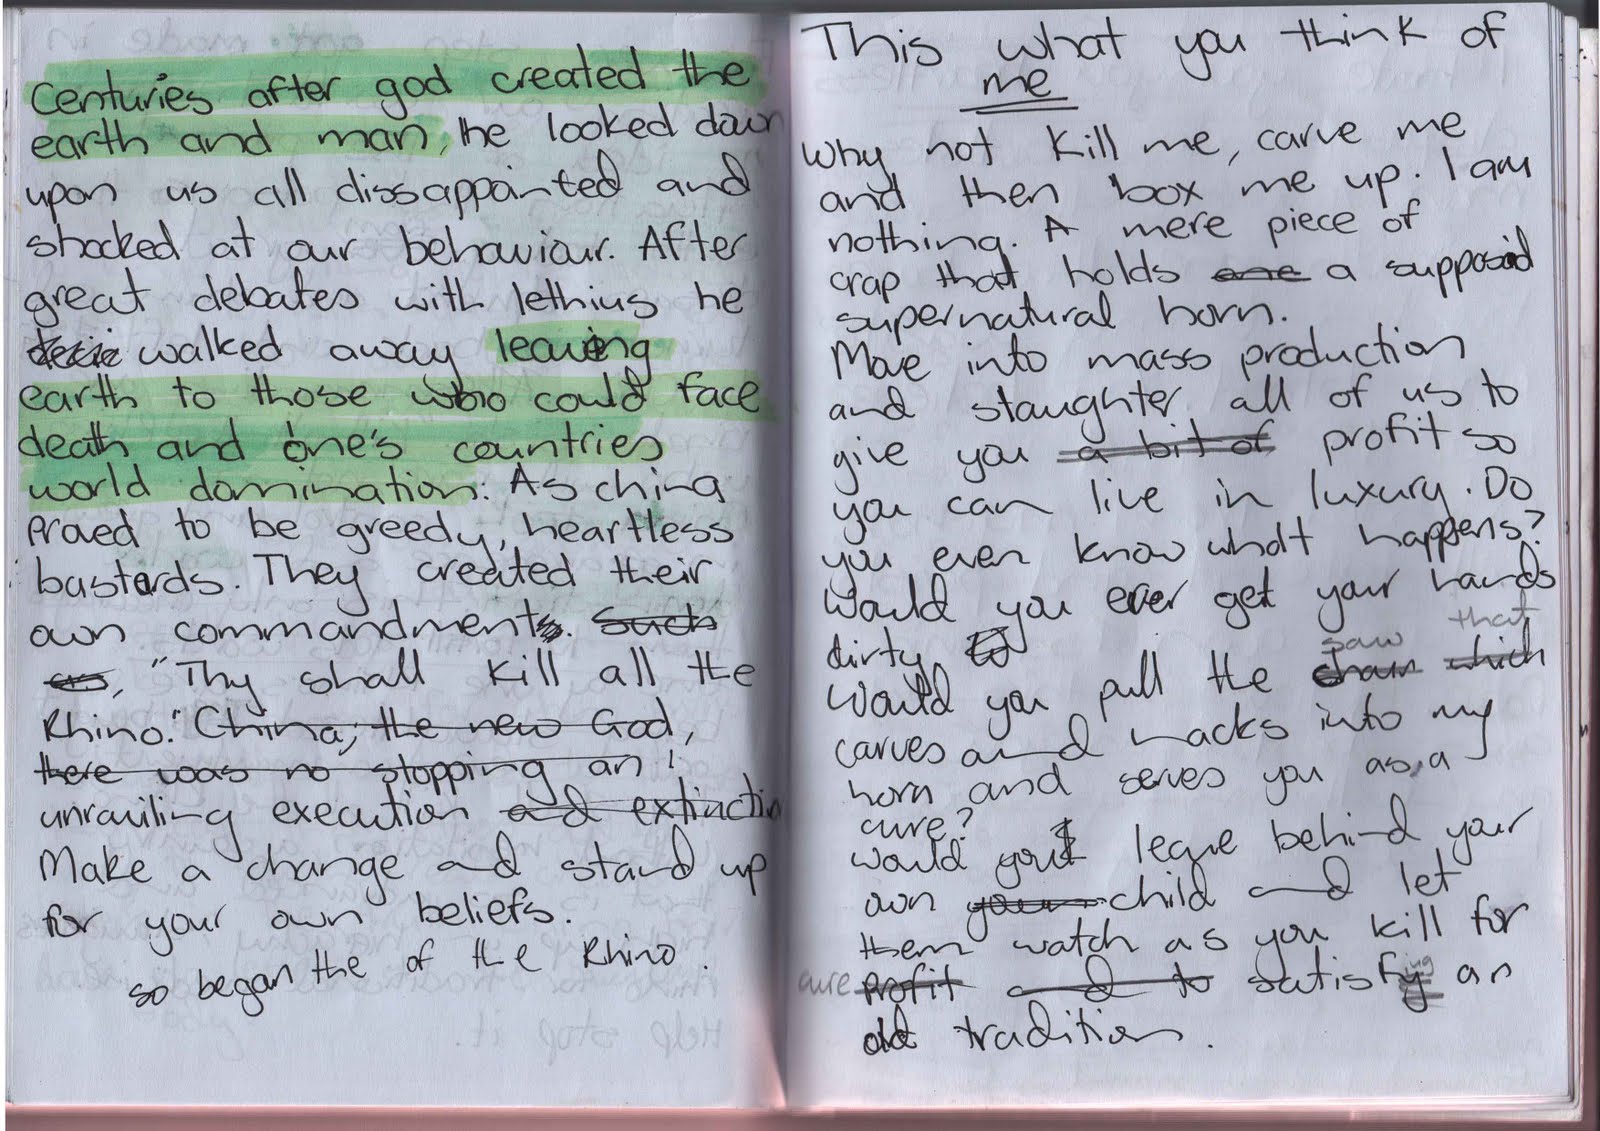 Centuries after god created the
earth and man, he looked down
upon us all dissappointed and
shocked at our behaviour. After
great debates with lethius he
walked away leaving
earth to those who could face
death and one's countries
world domination. As china
proved to be greedy, heartless
bastards. They created their
own commandments. Such
as, "Thy shall kill all the
Rhino." China, the new God,
there was no stopping an
unrailing execution and extinction
Make a change and stand up
for your own beliefs.
so began the of the Rhino.
This what you think of
me
Why not kill me, carve me
and then box me up. I am
nothing. A mere piece of
crap that holds one a supposid
supernatural horn.
Move into mass production
and slaughter all of us to
give you a bit of profit so
you can live in luxury. Do
you even know what happens?
Would you ever get your hands
dirty to
saw that
Would you pull the chain which
carves and hacks into my
horn and serves you as a
cure?
Would you leave behind your
own your child and let
them watch as you kill for
cure profit and to satisfying an
old tradition.